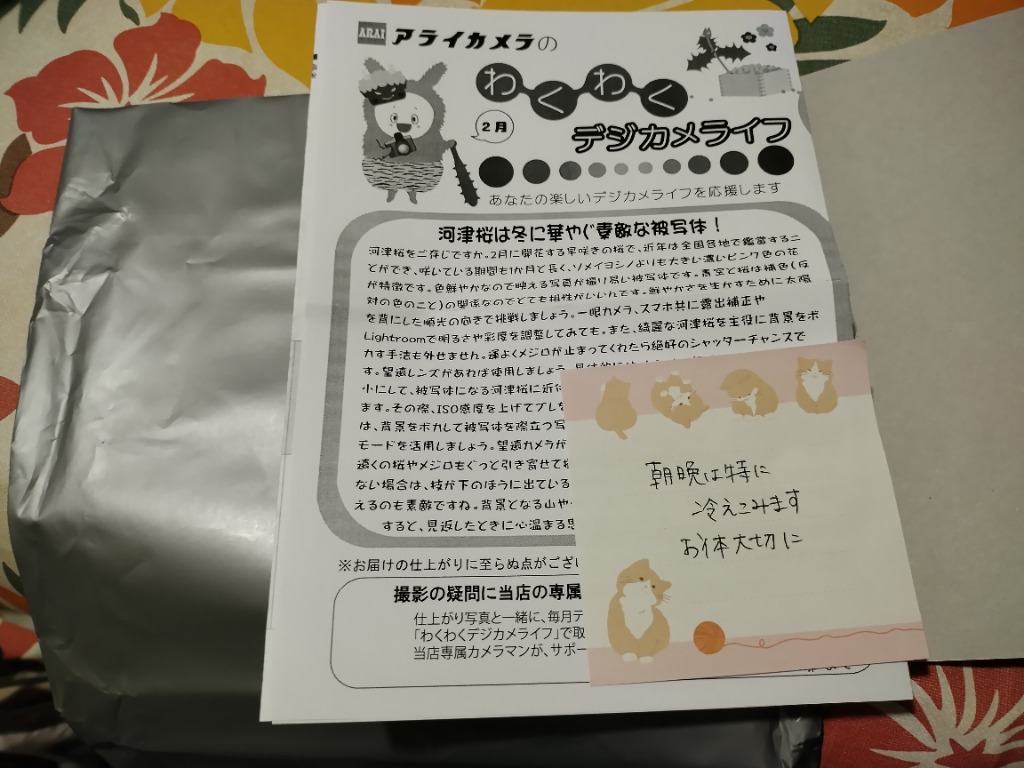 ARAI アライカメラの
わくわく
2月
デジカメライフ
あなたの楽しいデジカメライフを応援します
河津桜は冬に華やぐ素敵な被写体！
河津桜をご存じですか。2月に開花する早咲きの桜で、近年は全国各地で鑑賞するこ
とができ、咲いている期間も1か月と長く、ソメイヨシノよりも大きい濃いピンク色の花
が特徴です。色鮮やかなので映える写真が撮り易い被写体です。青空と桜は補色(反
対の色のこと)の関係なのでとても相性がいいんです。鮮やかさを生かすために太陽
を背にした順光の向きで挑戦しましょう。一眼カメラ、スマホ共に露出補正や
Lightroomで明るさや彩度を調整してみても。また、綺麗な河津桜を主役に背景をボ
カす手法も外せません。運よくメジロが止まってくれたら絶好のシャッターチャンスで
す。望遠レンズがあれば使用しましょう。
小にして、被写体になる河津桜に近付
ます。その際、ISO感度を上げてブレ
は、背景をボカして被写体を際立つ写
モードを活用しましょう。望遠カメラが
遠くの桜やメジロもぐっと引き寄せて
ない場合は、枝が下のほうに出ている
えるのも素敵ですね。背景となる山や
すると、見返したときに心温まる思
※お届けの仕上がりに至らぬ点がござい
撮影の疑問に当店の専属
仕上がり写真と一緒に、毎月デ
「わくわくデジカメライフ」で取
当店専属カメラマンが、サポー
朝晩は特に
冷えこみます
お体大切に